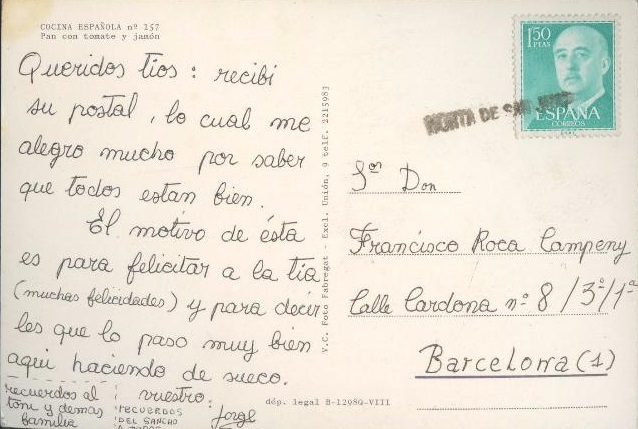 COCINA ESPAÑOLA nº 157
Pan con tomate y jamón
Queridos tios: recibi
su postal, lo cual me
alegro mucho por saber
que todos estan bien.
El motivo de ésta
es para felicitar a la tia
(muchas felicidades) y para decir
les que lo paso muy bien
aqui haciendo de sueco.
recuerdos al
toni y demas
familia
vuestro:
Jorge
RECUERDOS
DEL SANCHO
A TODOS
V.C. Foto Fabregat - Excl. Unión, 9 telf. 2215983
dép. legal B-12980-VIII
1,50
PTAS
ESPAÑA
CORREOS
DE SAN
Sor Don
Francisco Roca Campeny
Calle Cardona nº 8/3º/1ª
Barcelona (1)